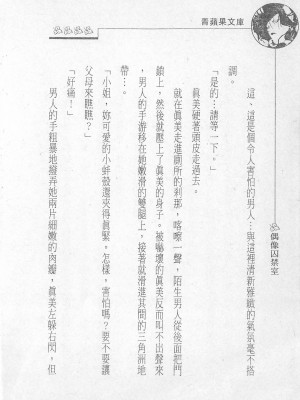 青蘋果文庫
偶像囚禁室
這、這是個令人害怕的男人…與這裡清新雅緻的氣氛毫不搭
調。
「是的…請等一下。」
真美硬著頭皮走過去。
就在真美走進廁所的剎那,喀嚓一聲,陌生男人從後面把門
鎖上,然後就壓上了真美的身子。被嚇壞的真美反而叫不出聲來
,男人的手游移在她嫩滑的雙腿上,接著就滑進其間的三角洲地
帶…。
「小姐,妳可愛的小蚌殼還夾得真緊,怎樣,害怕嗎?要不要讓
父母來瞧瞧?」
「好痛!」
男人的手粗暴地撥弄她兩片細嫩的肉瓣,真美左躲右閃,但